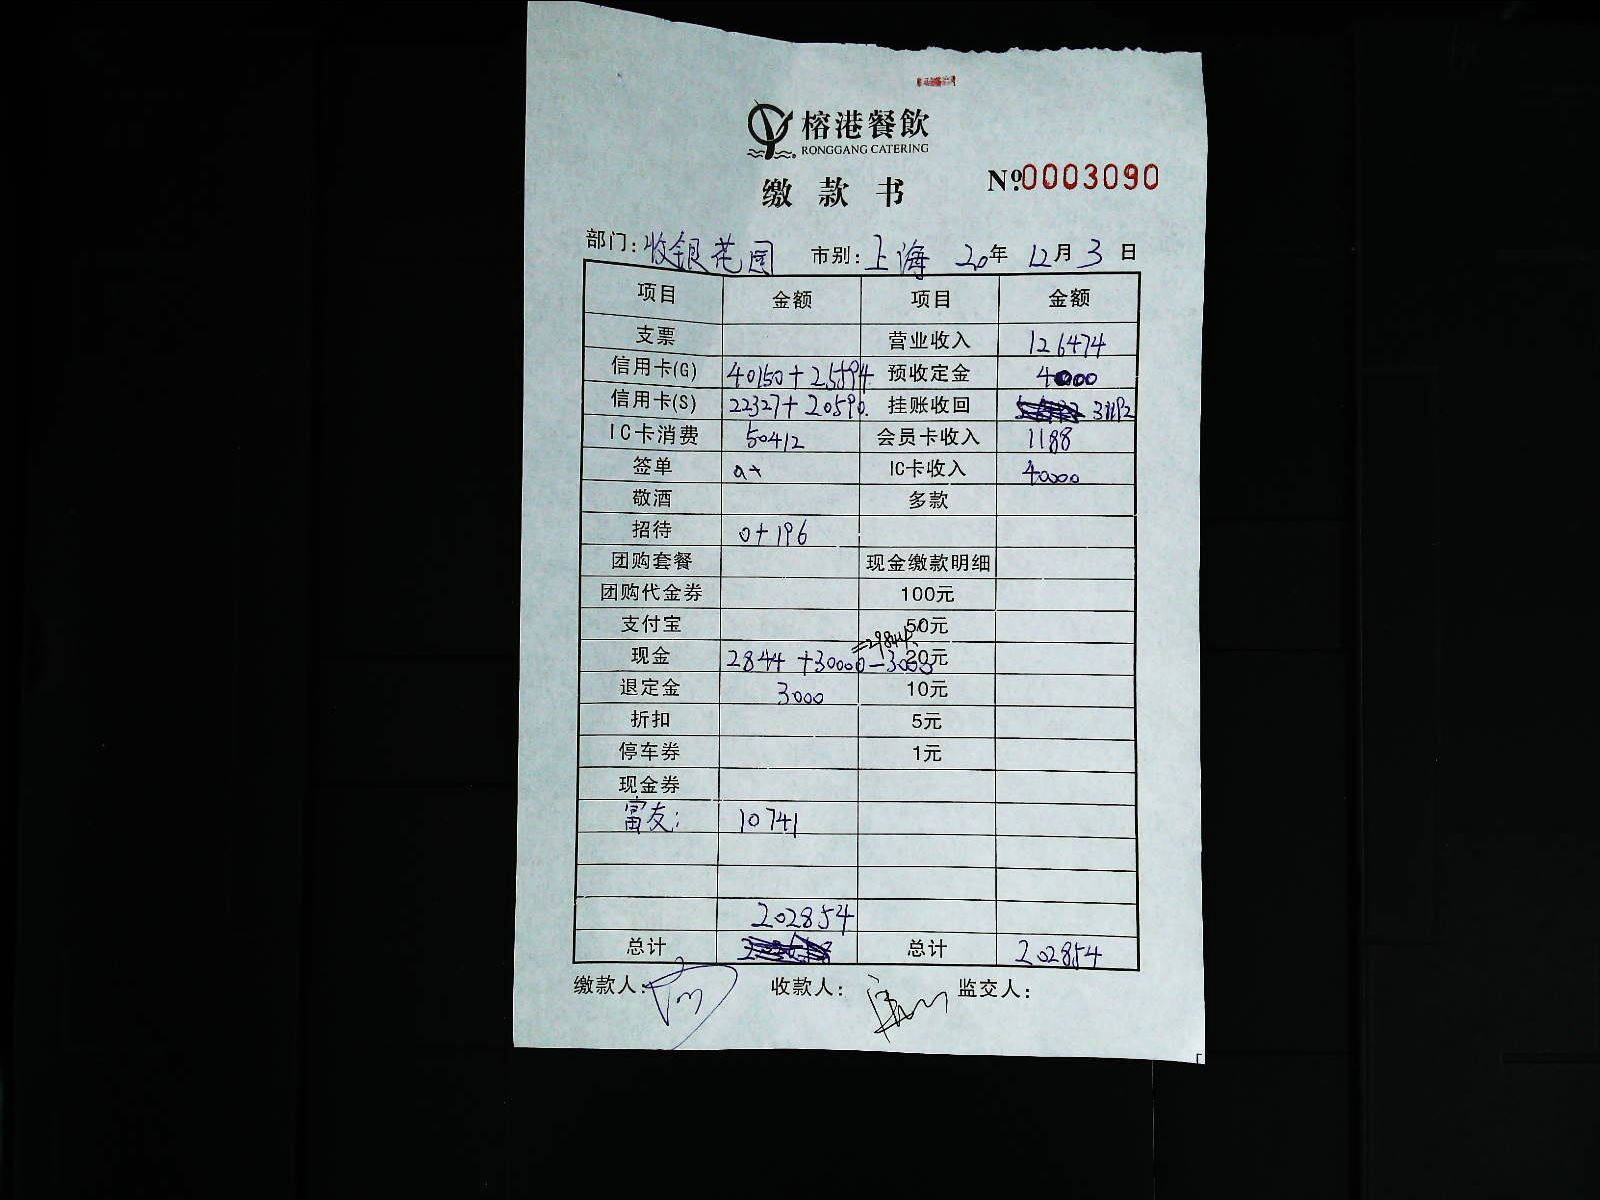 榕港餐飲
RONGGANG CATERING
缴款书
№0003090
部门：收银花园 市别：上海 20年 12月 3日
项目 金额 项目 金额
支票 营业收入 126474
信用卡(G) 40150+25594 预收定金 4000
信用卡(S) 22327+20590. 挂账收回 31192
IC卡消费 50412 会员卡收入 1188
签单 IC卡收入 40000
敬酒 多款
招待 0+196
团购套餐 现金缴款明细
团购代金券 100元
支付宝 50元
=29844
现金 2844+30000-3000 20元
退定金 3000 10元
折扣 5元
停车券 1元
现金券
富友: 10741
202854
总计 总计 202854
缴款人： 收款人： 监交人：